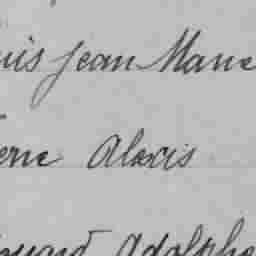 uis Jean Marie
erre Alexis
ouard Adolphe